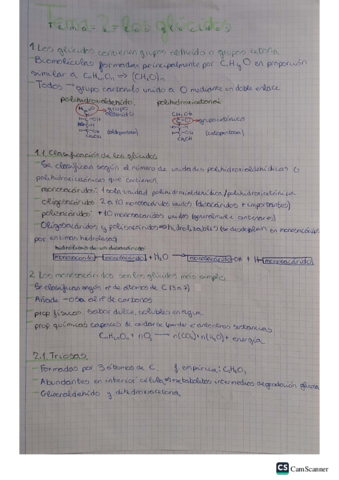 Tema 2: los glúcidos
1. Los glúcidos contienen grupos aldehído o grupos cetona
- Biomoléculas formadas principalmente por C, H y O en proporción
similar a CnH2nOn => (CH2O)n
- Todos → grupo carbonilo unido a O mediante un doble enlace
polihidroxialdehído polihidroxicetona
grupo aldehído
grupo cetónico
(aldopentosa) (cetopentosa)
1.1. Clasificación de los glúcidos
- Se clasifican según el número de unidades polihidroxialdehídicas o
polihidroxicetónicas que contienen
- monosacáridos: 1 sola unidad polihidroxialdehídica/polihidroxicetónica
- oligosacáridos: 2 a 10 monosacáridos unidos (disacáridos + importantes)
- polisacáridos: +10 monosacáridos unidos
- Oligosacáridos y polisacáridos → hidrolizables (se desdoblan en monosacáridos
por enzimas hidrolasas)
hidrólisis de un disacárido
monosacárido monosacárido + H2O → monosacárido-OH + H-monosacárido
2. Los monosacáridos son los glúcidos más simples
- Se clasifican según nº de átomos de C (3 a 7)
- Añade -osa al nº de carbonos
- prop físicas: sabor dulce, solubles en agua
- prop químicas: capaces de
CnH2nOn + nO2 → n(CO2) + n(H2O) + energía
2.1. Triosas
- Formadas por 3 átomos de C f empírica: C3H6O3
- Abundantes en interior célula → metabolitos intermedios degradación glucosa
- Gliceraldehído y dihidroxiacetona
CS CamScanner